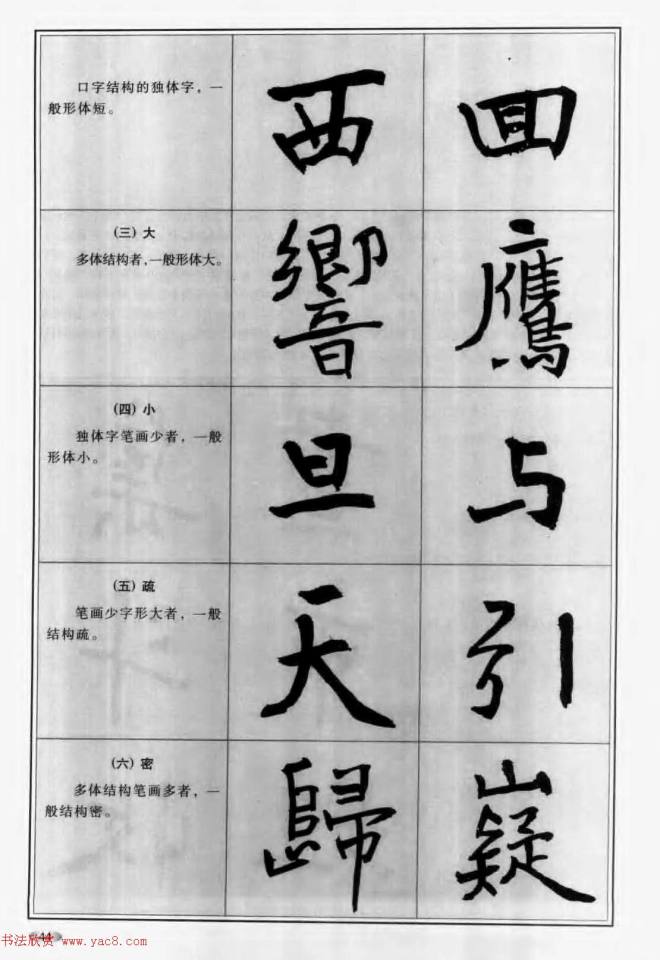 口字结构的独体字，一
般形体短。
西 回
(三) 大
多体结构者，一般形体大。
響 鷹
(四) 小
独体字笔画少者，一般
形体小。
旦 与
(五) 疏
笔画少字形大者，一般
结构疏。
天 引
(六) 密
多体结构笔画多者，一
般结构密。
歸 嶷
44
书法欣赏 www.yac8.com